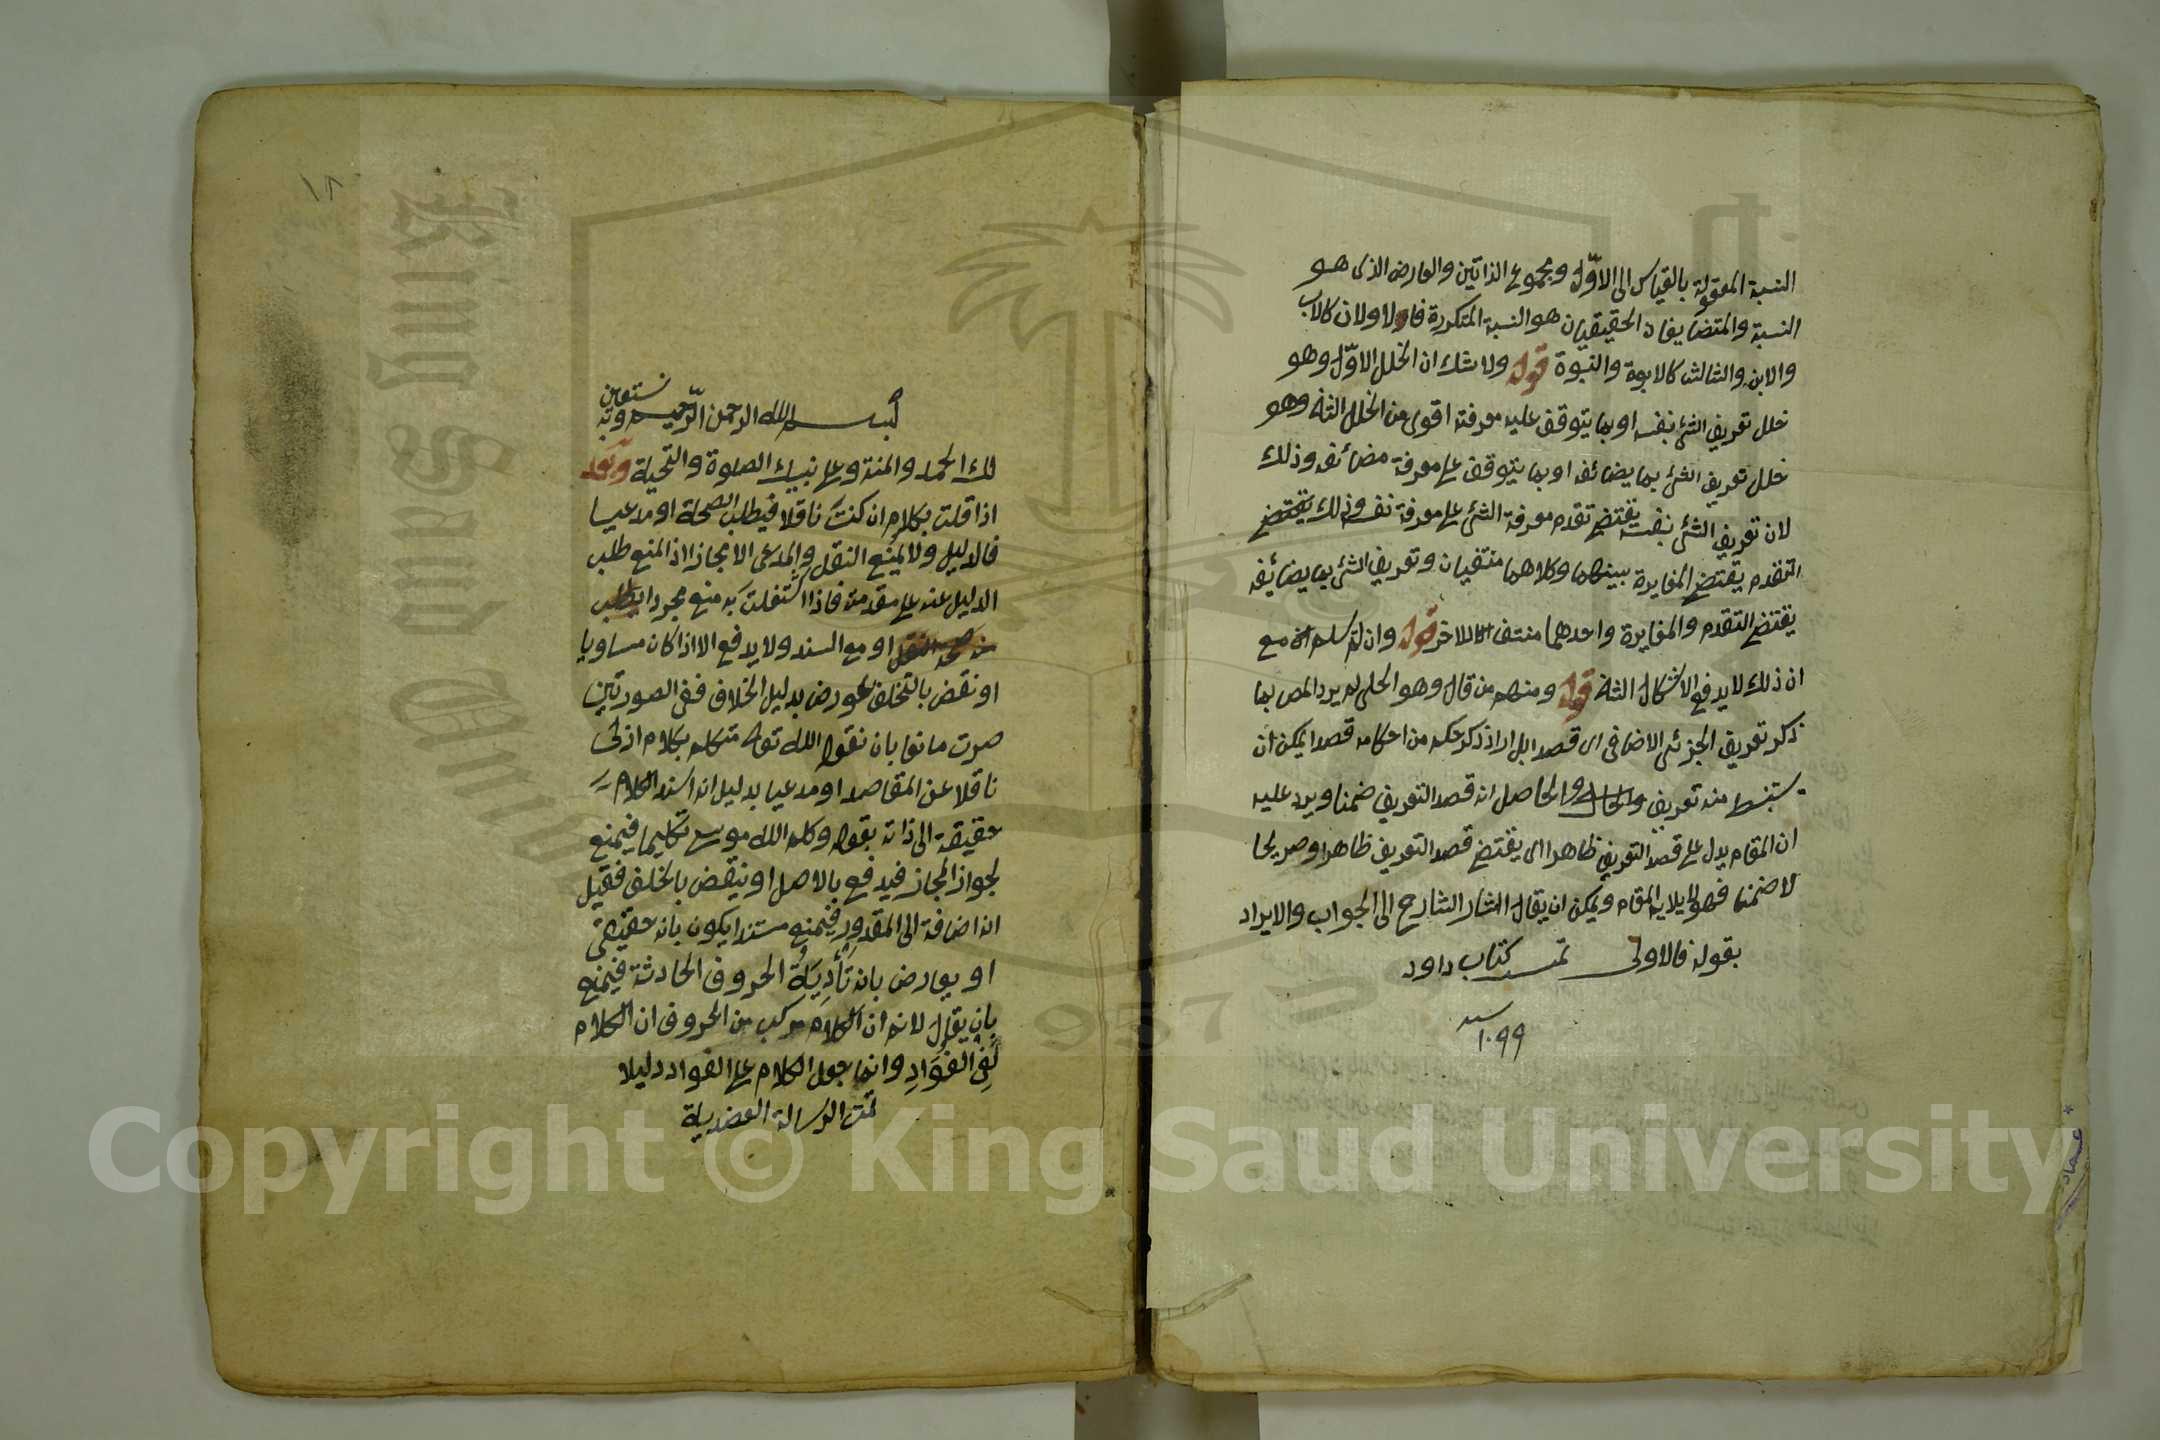 النسبة المعقولة بالقياس الى الاوّل ومجموع الذاتين والعارض الذى هو
النسبة والمتضايفان الحقيقيان هو النسبة المتكررة فاولا ولان كالاب
والابن والثالث كالابوة والنبوة قوله ولا شك ان الخلل الاوّل وهو
خلل تعريف الشئ بنفسه او بما يتوقف عليه معرفته اقوى من الخلل الثة وهو
خلل تعريف الشئ بما يضائفه او بما يتوقف على معرفة مضائفه وذلك
لان تعريف الشئ بنفسه يقتضى تقدم معرفة الشئ على معرفة نفسه وذلك يقتضى
التقدم يقتضى المغايرة بينهما وكلاهما منتفيان وتعريف الشئ بما يضائفه
يقتضى التقدم والمغايرة واحدهما منتف لا الاخر قوله وان لم سلم انه مع
ان ذلك لا يدفع الاشكال الثة قوله ومنهم من قال وهو الحلى لم يرد المص بما
ذكر تعريف الجزئى الاضافى اى قصدا بل اراد ذكر حكم من احكامه قصدا يمكن ان
يستنبط منه تعريف والحاصل انه قصد التعريف ضمنا ويرد عليه
ان المقام يدل على قصد التعريف ظاهرا اى يقتضى قصد التعريف ظاهرا وصريحا
لا ضمنا فهو لا يلايم المقام ويمكن ان يقال اشار الشارح الى الجواب والايراد
بقوله فالاولى تمت كتاب داود
سنه
١٠٩٩
عماد
١٨
بسم الله الرحمن الرّحيم وبه نستعين
لك الحمد والمنة وعلى نبيك الصلوة والتحية وبعد
اذا قلت بكلام ان كنت ناقلا فيطلب الصحة او مدعيا
فالدليل ولا يمنع النقل والمدعى الا مجازا اذ المنع طلب
الدليل عنه على مقدمته فاذا اشتغلت به منع مجردا
او مع السند ولا يدفع الا اذا كان مساويا
او نقض بالتخلف عورض بدليل الخلاف ففى الصورتين
صرت مانعا بان نقول الله تعالى متكلم بكلام ازلى
ناقلا عن المقاصد او مدعيا بدليل انه اسند الكلام
حقيقة الى ذاته بقوله وكلم الله موسى تكليما فيمنع
لجواز المجاز فيدفع بالاصل او ينقض بالخلف فقيل
انه اضافة الى المقدور فيمنع مستندا يكون بانه حقيقى
او يعارض بانه تَأْدِيَةُ الحروف الحادثة فيمنع
بان يقول لانم ان الكلام مركب من الحروف ان الكلام
لَفِى الفُؤَادِ وانما جعل الكلام على الفواد دليلا
تمت الرسالة العضدية
Copyright © King Saud University
King Saud University
1957